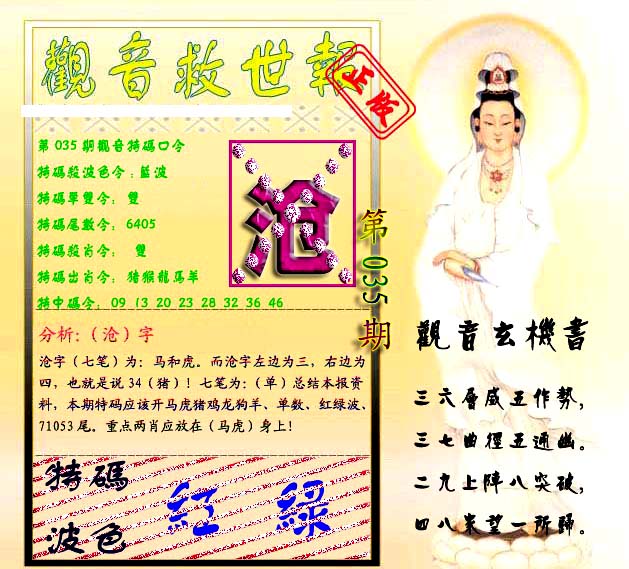 觀音救世報
正版
第035期觀音特碼口令
特碼殺波色令：藍波
特碼單雙令： 雙
特碼尾數令： 6405
特碼殺肖令： 雙
特碼出肖令： 猪猴龍馬羊
特中碼令： 09 13 20 23 28 32 36 46
沧
第035期
分析:（沧）字
沧字（七笔）为：马和虎。而沧字左边为三，右边为
四，也就是说34（猪）！七笔为：（单）总结本报资
料，本期特码应该开马虎猪鸡龙狗羊、单数、红绿波、
71053尾。重点两肖应放在（马虎）身上！
特碼
波色
紅 綠
觀音玄機書
三六層威五作勢，
三七曲徑五通幽。
二九上陣八突破，
四八衆望一所歸。